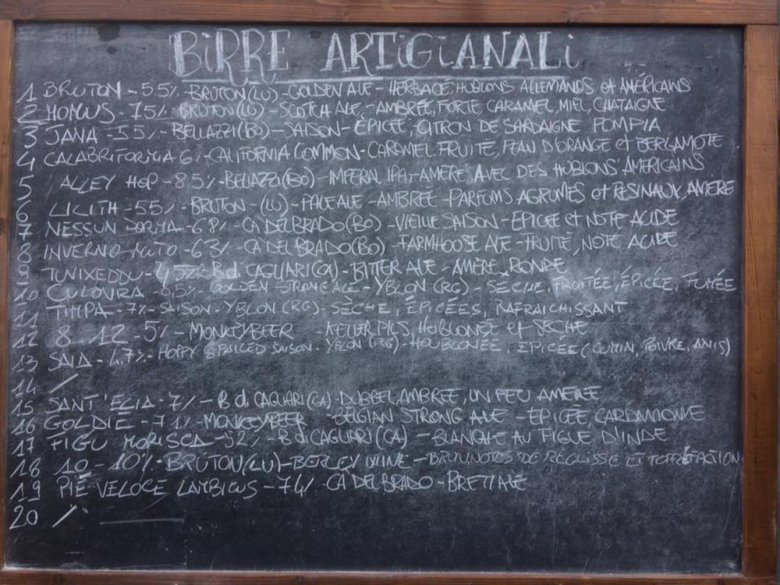 BIRRE ARTIGIANALI
1 BRUTON - 5.5% - BRUTON (LU) - GOLDEN ALE - HERBACÉ, HUBLONS ALLEMANDS et AMÉRICAINS
2 MOMUS - 7.5% BRUTON (LU) - SCOTCH ALE, - AMBRÉE, FORTE, CARAMEL, MIEL, CHATAIGNE
3 JANA - 5.5% - BELLAZZI (BO) - SAISON - EPICÉE, CITRON DE SARDAIGNE POMPIA
4 CALABRIFORNIA 6% - CALIFORNIA COMMON - CARAMEL FRUITÉ, PEAU D'ORANGE et BERGAMOTE
5 ALLEY HOP - 8.5% - BELLAZZI (BO) - IMPERIAL IPA - AMERE AVEC DES HUBLONS AMERICAINS
6 LILITH - 5.5% BRUTON - (LU) - PALE ALE - AMBRÉE - PARFUMS AGRUMES et RESINAUX, AMERE
7 NESSUN DORMA - 6.8% CA DEL BRADO (BO) - VIEILLE SAISON - EPICÉE et NOTE ACIDE
8 INVERNO MUTO - 6.3% CA DEL BRADO (BO) - FARMHOUSE ALE - FRUITÉ, NOTE ACIDE
9 TUVIXEDDU - 4,5% B di CAGLIARI (CA) - BITTER ALE - AMÈRE, RONDE
10 CULOVRA 8.5% - GOLDEN STRONG ALE - YBLON (RG) - SÈCHE, FRUITÉE, ÉPICÉE, FUMÉE
11 TIMPA - 7% - SAISON - YBLON (RG) - SÈCHE, ÉPICÉES, RAFRAICHISSANT
12 8.12 - 5% - MONKEYBEER - KELLER PILS, HOUBLONSE et SÈCHE
13 SAIA - 4.7% - HOPPY SPAICED SAISON - YBLON (RG) - HOUBLONÉE, EPICÉE (CUMIN, POIVRE, ANIS)
14 /
15 SANT'ELIA - 7% - B di CAGLIARI (CA) - DUBBEL AMBRÉE, UN PEU AMERE
16 GOLDIE - 7.1% - MONKEYBEER - BELGIAN STRONG ALE - EPICÉE, CARDAMOME
17 FIGU MORISCA - 5.2% - B di CAGLIARI (CA) - BLANCHE AU FIGUE D'INDE
18 10 - 10% - BRUTON (LU) - BERLEY WINE - BRUN, NOTES DE REGLISSE ET TORRÉFACTION
19 PIÈ VELOCE LAMBICUS - 7.4% CA DEL BRADO - BRETT ALE
20 /